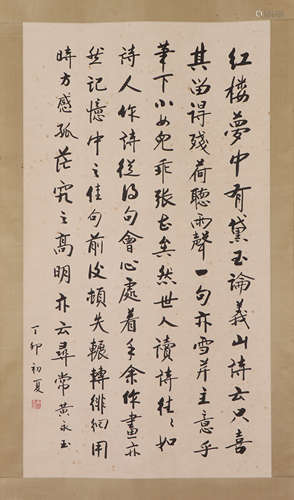 红楼夢中有黛玉論義山詩云只喜
其留得殘荷聽雨聲一句亦雪芹主意乎
筆下小女兒乖張甚矣然世人讀詩往往如
詩人作詩從得句會心處着手余作畫亦
然記憶中之佳句前後頓失輾轉徘徊用
時方感孤茫究之高明亦云尋常黄永玉
丁卯初夏